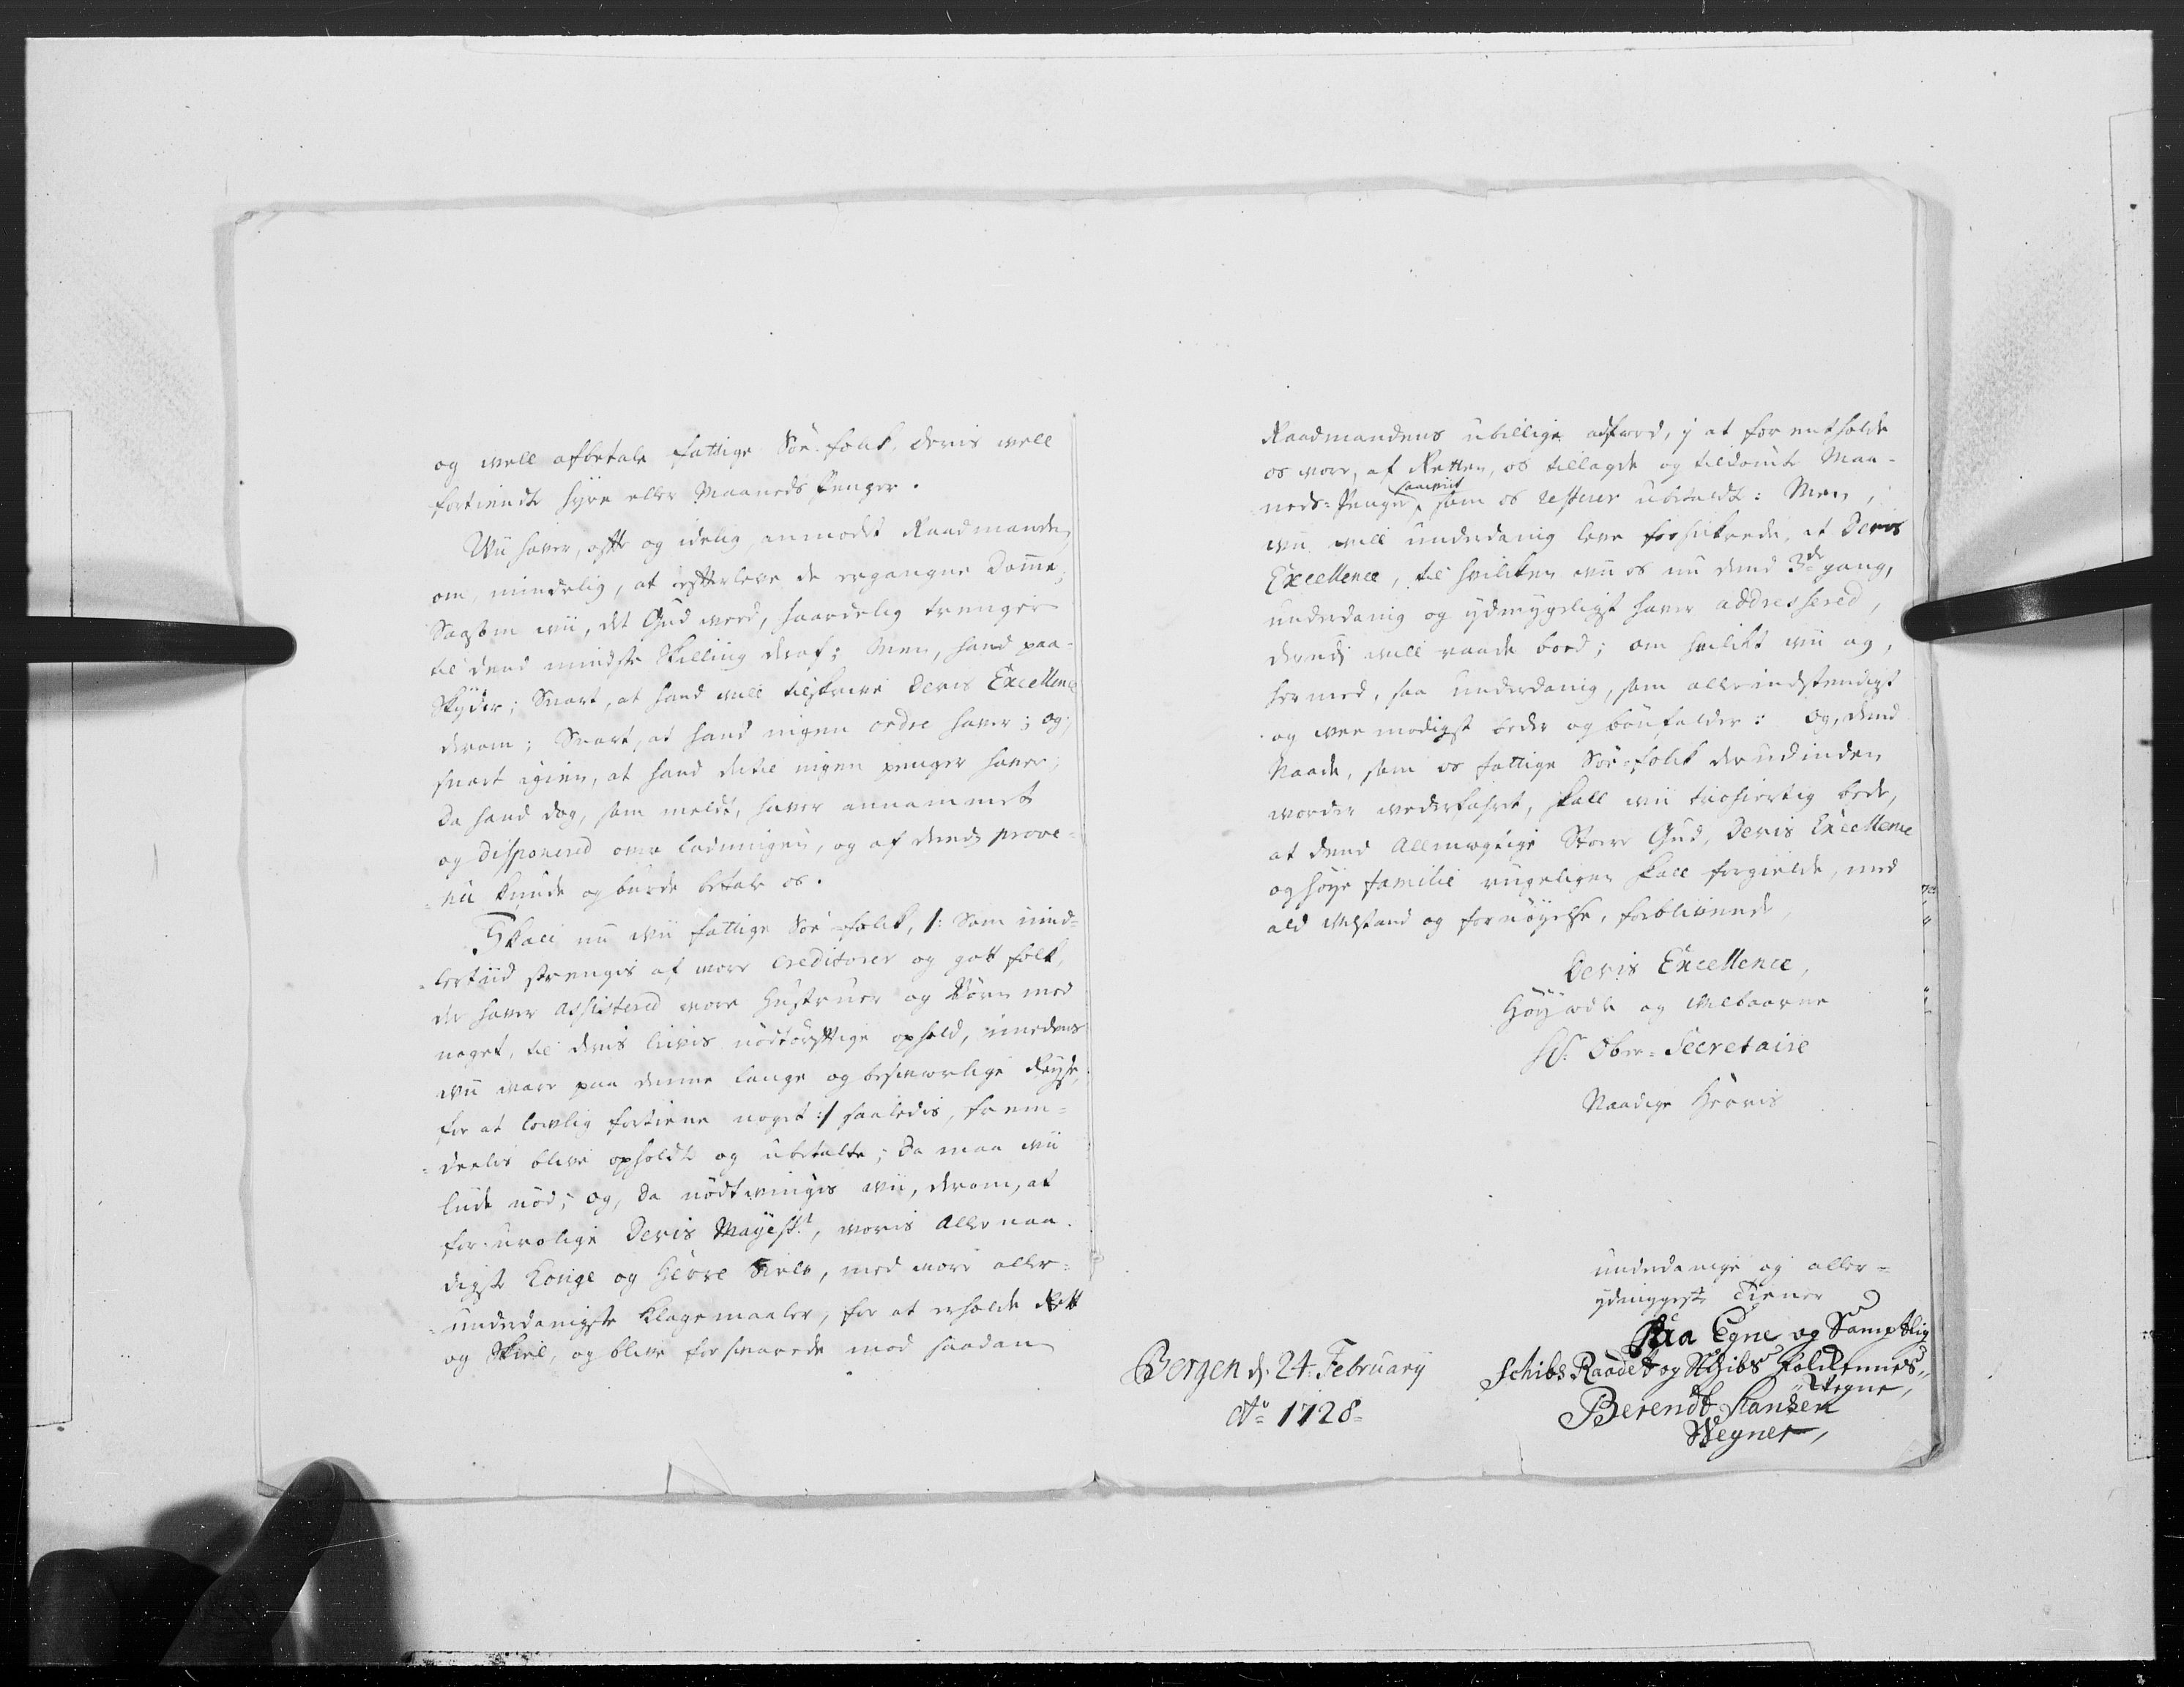 og well afbetale fattige Söe-folk, deris well
fortiendte hyre eller Maaneds Penger.
Wii haver, offte og idelig anmodet Raadmanden,
om, mindelig, at effterleve de ergangne Domme;
Saasom wii, det Gud weed, haardelig trenger
til dend mindste Skilling deraf; Men, hand paa-
skyder; Snart, at hand will tilskrive Deris Excellence
derom; Snart, at hand ingen ordre haver; og,
snart igien, at hand dertil ingen penger haver;
Da hand dog, som meldt, haver annammet
og disponered over ladningen, og af dends prove-
nü kunde og burde betale os.
Skall nu wii fattige Söe-folk, /: Som imid-
lertiid trenges af wore Creditorer og gott folk,
der haver assistered wore Hustruer og Börn med
noget, til deris liivis nödtörfftige ophold, imedens
wii ware paa denne lange og besværlige Reyse,
for at lowlig fortiene noget :/ saaledis, frem-
deelis blive opholdte og ubetalte; Da maa wii
lide nöd; og, da nödtwinges wii, derom, at
for-urolige Deris Mayest.t, woris Allernaa-
digste Konge og Herre Selv, med wore aller-
underdanigste Klagemaaler, for at erholde Rett
og Skiel, og blive forsvarede mod saadan
Raadmandens ubillige adfærd, j at forentholde
os wore, af Retten, os tillagde og tildömte Maa-
neds-Penger, som os resterer ubetaldt: Men,
wii will underdanig leve forsikrede, at Deris
Excellence, til hvilken wii os nu dend 3de gang,
underdanig og ydmygeligst haver addressered,
derudj will raade bood; om hvilket wii og,
hermed, saa underdanig, som allerindstendigst
og wee modigst beder og bönfalder: Og, dend
Naade, som os fattige Söe-folk derudinden
worder wederfahret, skall wii troehiertig bede,
at dend Allmægtige Store Gud, Deris Excellence
og höye familie rigeligen skall forgielde, med
ald Velstand og fornöyelse, forblivende,
Deris Excellence,
Höyædle og Velbaarne
Hr. Ober-Secretaire
Naadige Herris
underdanige og aller-
ydmygeste Tiener
Paa Egne og Samptlig
Schibs Raadet og Schibs Folkkennes
Wegne,
Berendt Hansen
Wegner,
Bergen d. 24. February
Ao 1728